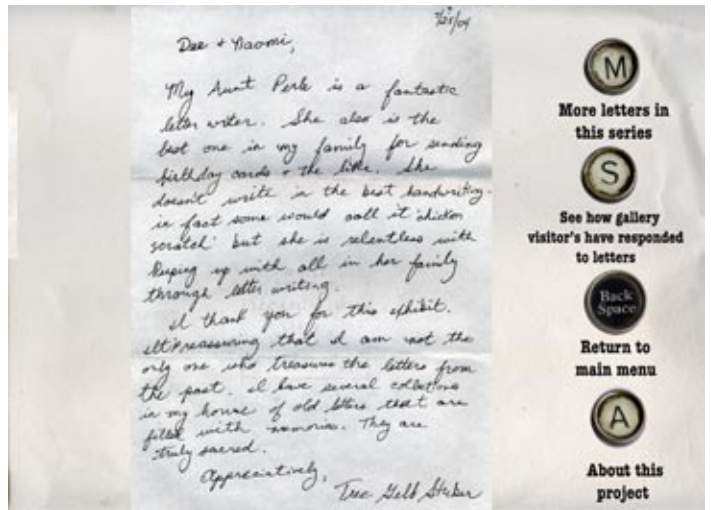 7/25/04
Dee + Naomi,
My Aunt Perle is a fantastic
letter writer. She also is the
best one in my family for sending
birthday cards + the like. She
doesn't write in the best handwriting -
in fact some would call it 'chicken
scratch' but she is relentless with
keeping up with all in her family
through letter writing.
I thank you for this exhibit.
It's reassuring that I am not the
only one who treasures the letters from
the past. I have several collections
in my house of old letters that are
filled with memories. They are
truly sacred.
Appreciatively,
Gelb
M
More letters in
this series
S
See how gallery
visitor's have responded
to letters
Back
Space
Return to
main menu
A
About this
project